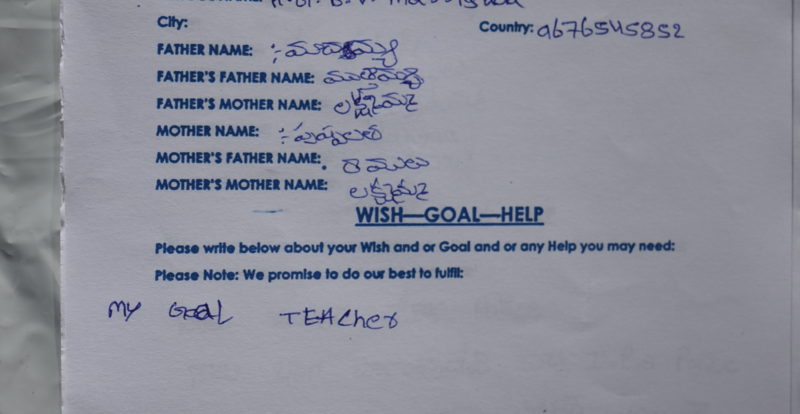 City:
Country: 9676545852
FATHER NAME: :-
FATHER'S FATHER NAME: ముత్తయ్య
FATHER'S MOTHER NAME: లక్ష్మమ్మ
MOTHER NAME: :- పుష్పలత
MOTHER'S FATHER NAME: రాములు
MOTHER'S MOTHER NAME: లక్ష్మమ్మ
WISH—GOAL—HELP
Please write below about your Wish and or Goal and or any Help you may need:
Please Note: We promise to do our best to fulfil:
MY GOAL TEACher